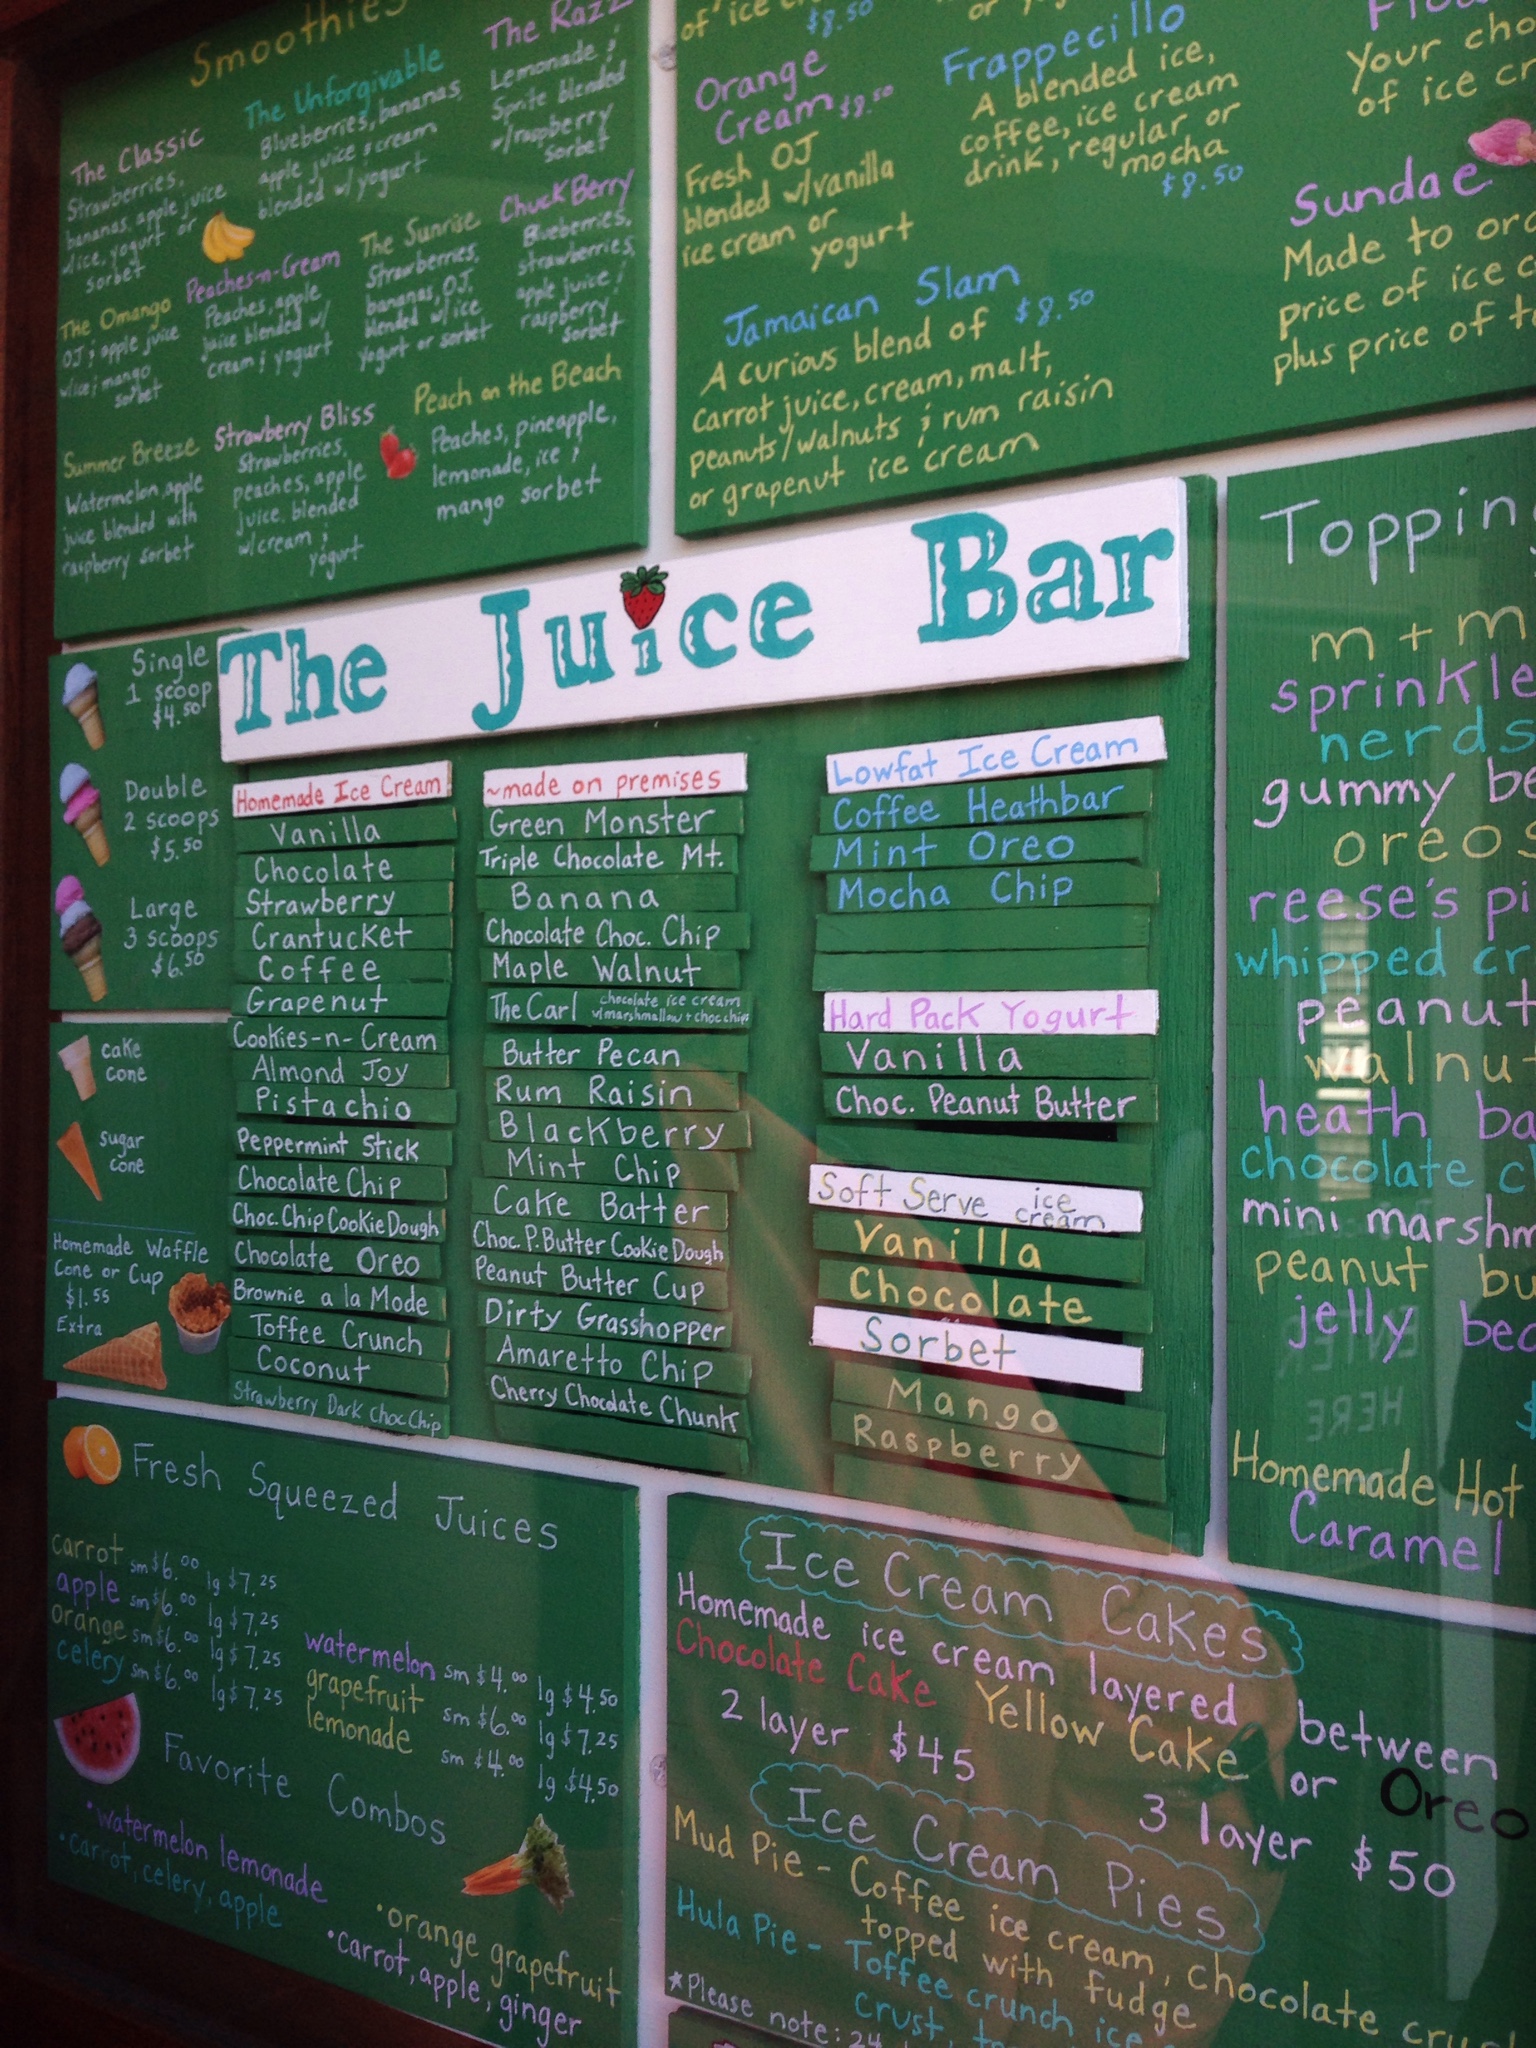 Smoothies
The Classic
Strawberries,
bananas, apple juice
w/ice, yogurt or
sorbet
The Unforgivable
Blueberries, bananas,
apple juice & cream
blended w/ yogurt
The Razz
Lemonade &
Sprite blended
w/raspberry
sorbet
The Omango
OJ & apple juice
w/ice & mango
sorbet
Peaches-n-Cream
Peaches, apple
juice blended w/
cream & yogurt
The Sunrise
Strawberries,
bananas, OJ,
blended w/ice
yogurt or sorbet
Chuck Berry
Blueberries,
strawberries,
apple juice &
raspberry
sorbet
Summer Breeze
Watermelon, apple
juice blended with
raspberry sorbet
Strawberry Bliss
Strawberries,
peaches, apple
juice, blended
w/cream &
yogurt
Peach on the Beach
Peaches, pineapple,
lemonade, ice &
mango sorbet
of ice
$8.50
Orange
Cream $8.50
Fresh OJ
blended w/vanilla
ice cream or
yogurt
Frappecillo
A blended ice,
coffee, ice cream
drink, regular or
mocha
$8.50
Jamaican Slam
A curious blend of $8.50
carrot juice, cream, malt,
peanuts/walnuts & rum raisin
or grapenut ice cream
Your
of ice
Sundae
Made to
price of ice
plus price of
The Juice Bar
Single
1 scoop
$4.50
Double
2 scoops
$5.50
Large
3 scoops
$6.50
cake
cone
sugar
cone
Homemade Waffle
Cone or Cup
$1.55
Extra
Homemade Ice Cream
Vanilla
Chocolate
Strawberry
Crantucket
Coffee
Grapenut
Cookies-n-Cream
Almond Joy
Pistachio
Peppermint Stick
Chocolate Chip
Choc. Chip Cookie Dough
Chocolate Oreo
Brownie a la Mode
Toffee Crunch
Coconut
Strawberry Dark Choc Chip
~made on premises
Green Monster
Triple Chocolate Mt.
Banana
Chocolate Choc. Chip
Maple Walnut
The Carl chocolate ice cream
w/marshmallow + choc chips
Butter Pecan
Rum Raisin
Blackberry
Mint Chip
Cake Batter
Choc. P. Butter Cookie Dough
Peanut Butter Cup
Dirty Grasshopper
Amaretto Chip
Cherry Chocolate Chunk
Lowfat Ice Cream
Coffee Heathbar
Mint Oreo
Mocha Chip
Hard Pack Yogurt
Vanilla
Choc. Peanut Butter
Soft Serve ice
cream
Vanilla
Chocolate
Sorbet
Mango
Raspberry
Toppin
m + m
sprinkle
nerds
gummy be
oreos
reese's pi
whipped cr
peanut
walnut
heath ba
chocolate c
mini marshm
peanut bu
jelly
ENTER
HERE
Homemade Hot
Caramel
Fresh Squeezed Juices
carrot sm $6.00 lg $7.25
apple sm $6.00 lg $7.25
orange sm $6.00 lg $7.25
celery sm $6.00 lg $7.25
watermelon sm $4.00 lg $4.50
grapefruit sm $6.00 lg $7.25
lemonade sm $4.00 lg $4.50
Favorite Combos
• watermelon lemonade
• carrot, celery, apple
• orange grapefruit
• carrot, apple, ginger
Ice Cream Cakes
Homemade ice cream layered between
Chocolate Cake Yellow Cake or Oreo
2 layer $45
3 layer $50
Ice Cream Pies
Mud Pie - Coffee ice cream, chocolate
topped with fudge
Hula Pie - Toffee crunch ice
crust,
*Please note: 24